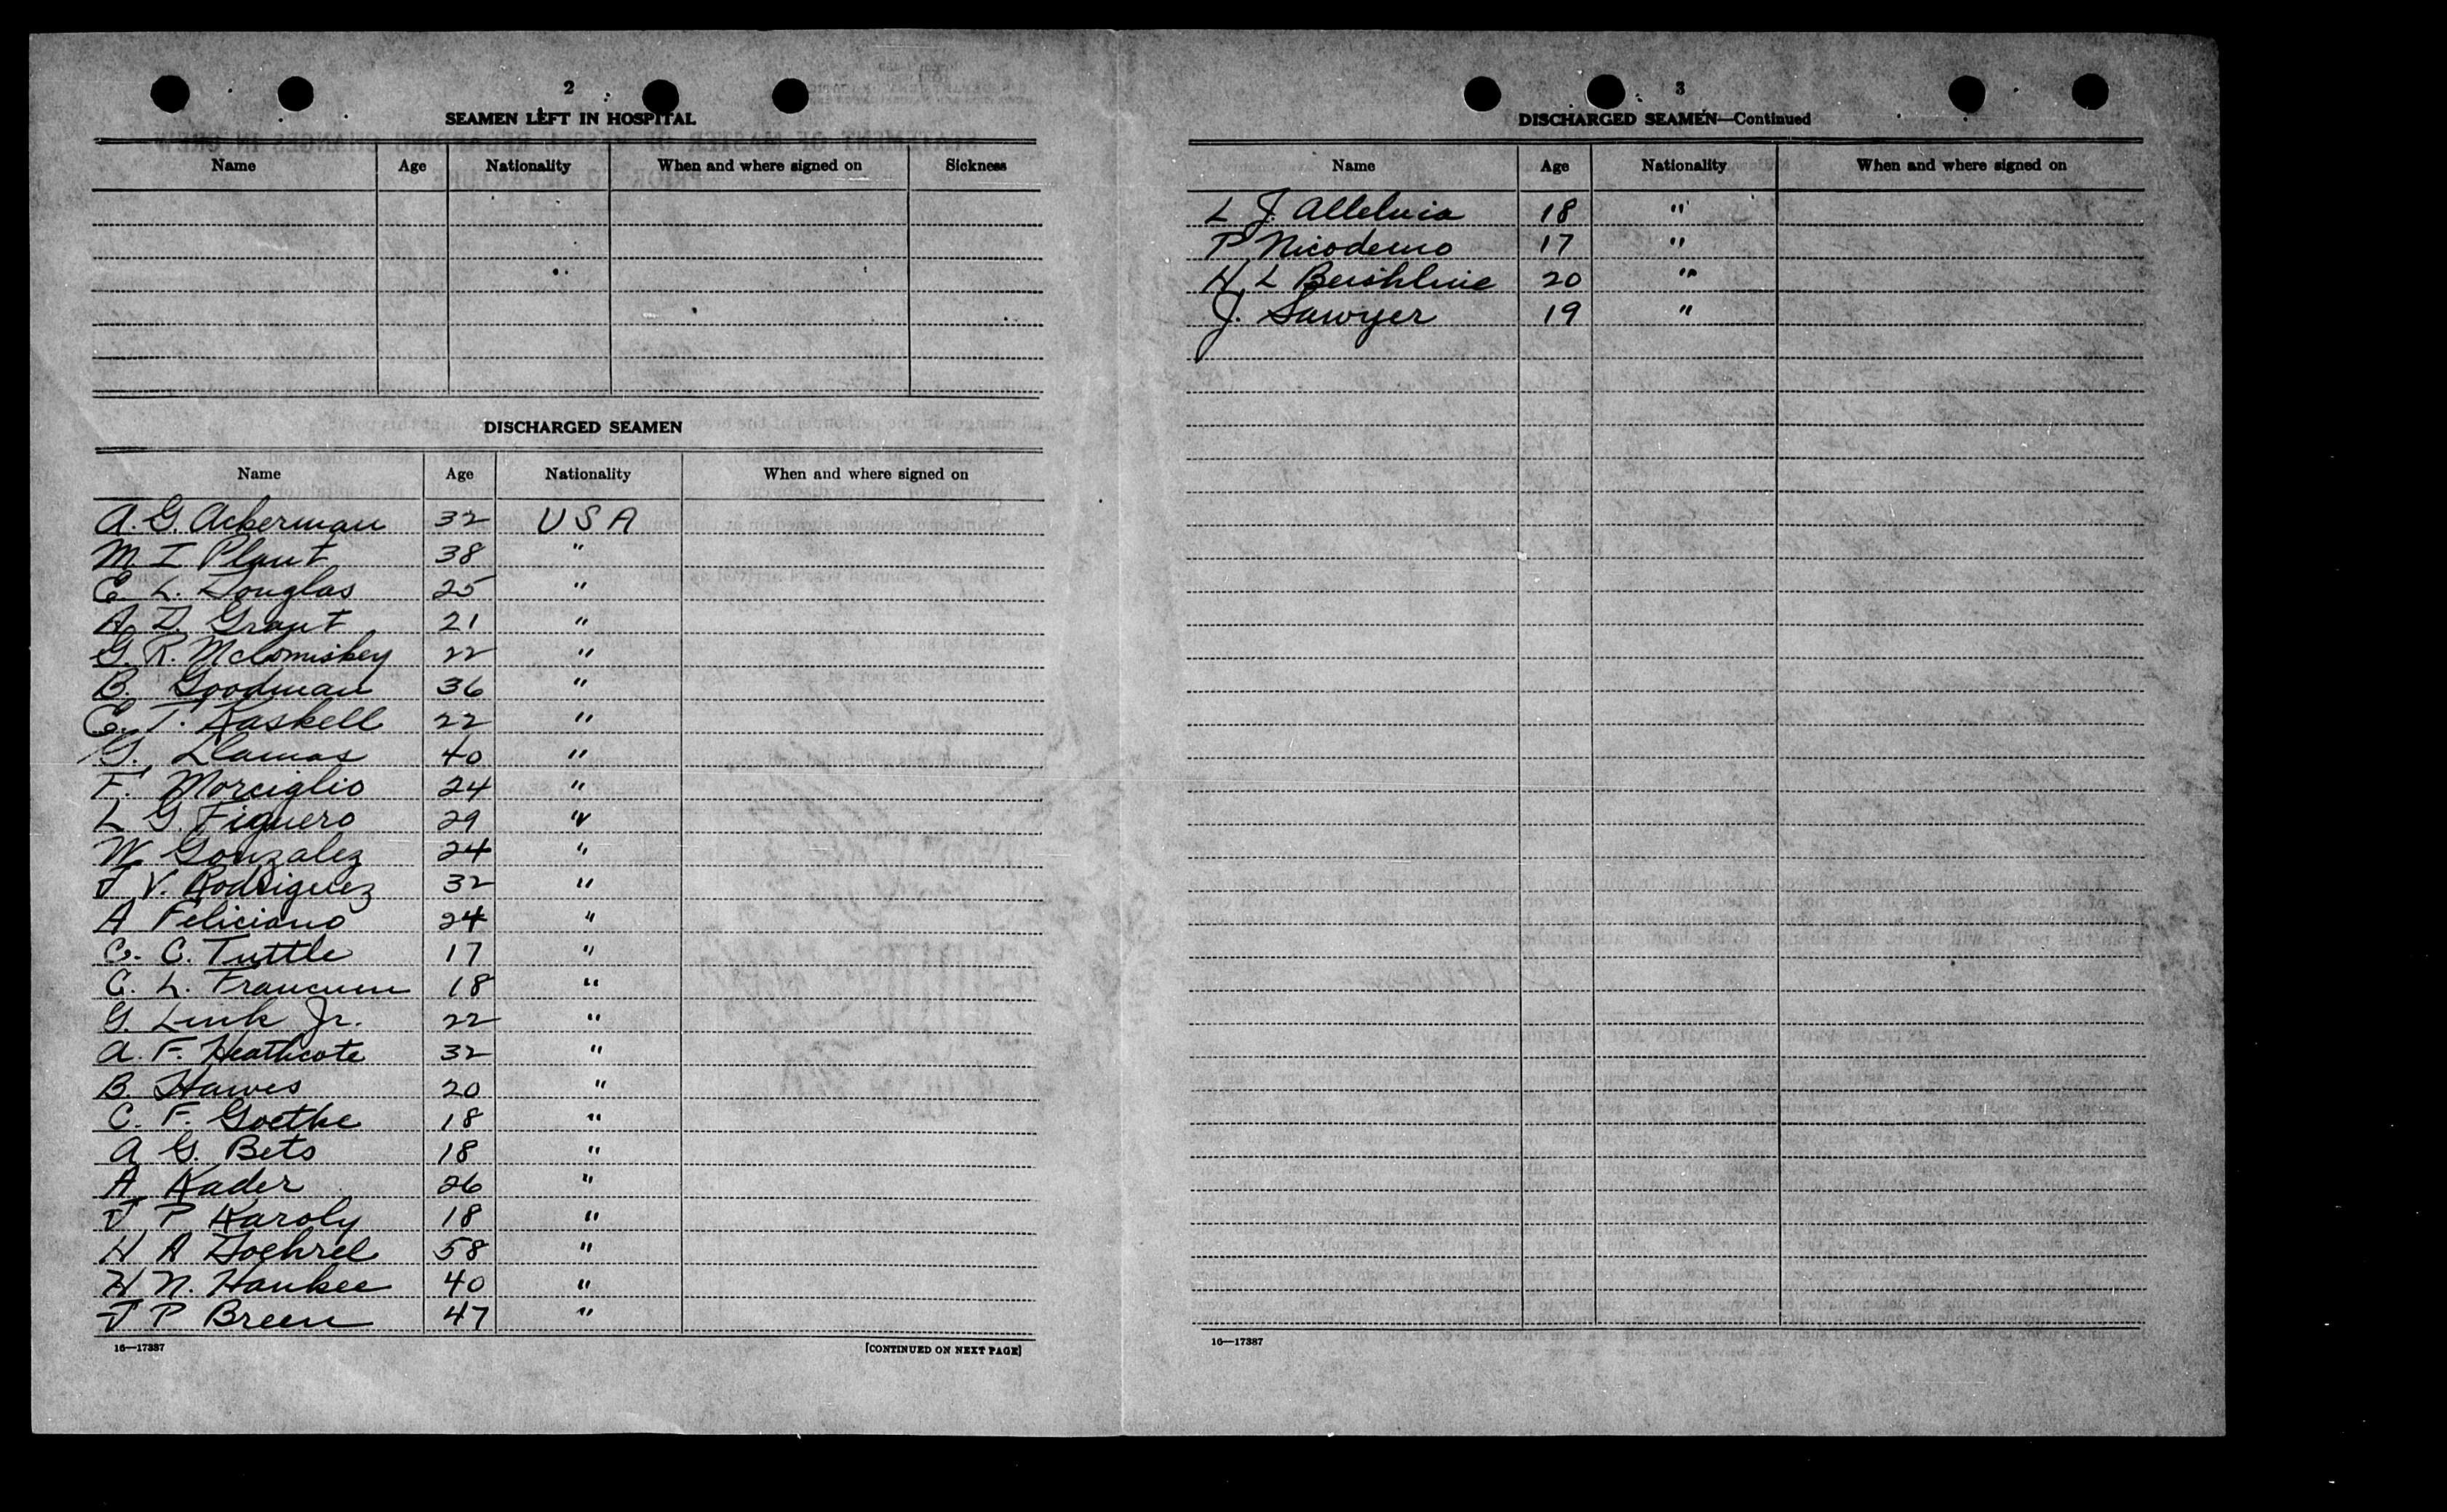 2
SEAMEN LEFT IN HOSPITAL
Name Age Nationality When and where signed on Sickness
DISCHARGED SEAMEN
Name Age Nationality When and where signed on
A. G. Ackerman 32 USA
M. I Plant 38 "
E. L. Douglas 25 "
A. D. Grant 21 "
G. R. McComiskey 22 "
B. Goodman 36 "
E. T. Kaskell 22 "
G. Llamas 40 "
F. Morciglio 24 "
L G. Figuero 29 "
W. Gonzalez 24 "
J V. Rodriguez 32 "
A Feliciano 24 "
C. C. Tuttle 17 "
C. L. Francum 18 "
G. Link Jr. 22 "
A. F. Heathcote 32 "
B. Hawes 20 "
C. F. Goethe 18 "
A G. Bets 18 "
A. Kader 26 "
J P Karoly 18 "
H A Doehrel 58 "
H N. Hankee 40 "
J P Breen 47 "
16—17387 [CONTINUED ON NEXT PAGE]
3
DISCHARGED SEAMEN—Continued
Name Age Nationality When and where signed on
L J. Alleluia 18 "
P Nicodemo 17 "
H L Beishline 20 "
J. Sawyer 19 "
16—17387